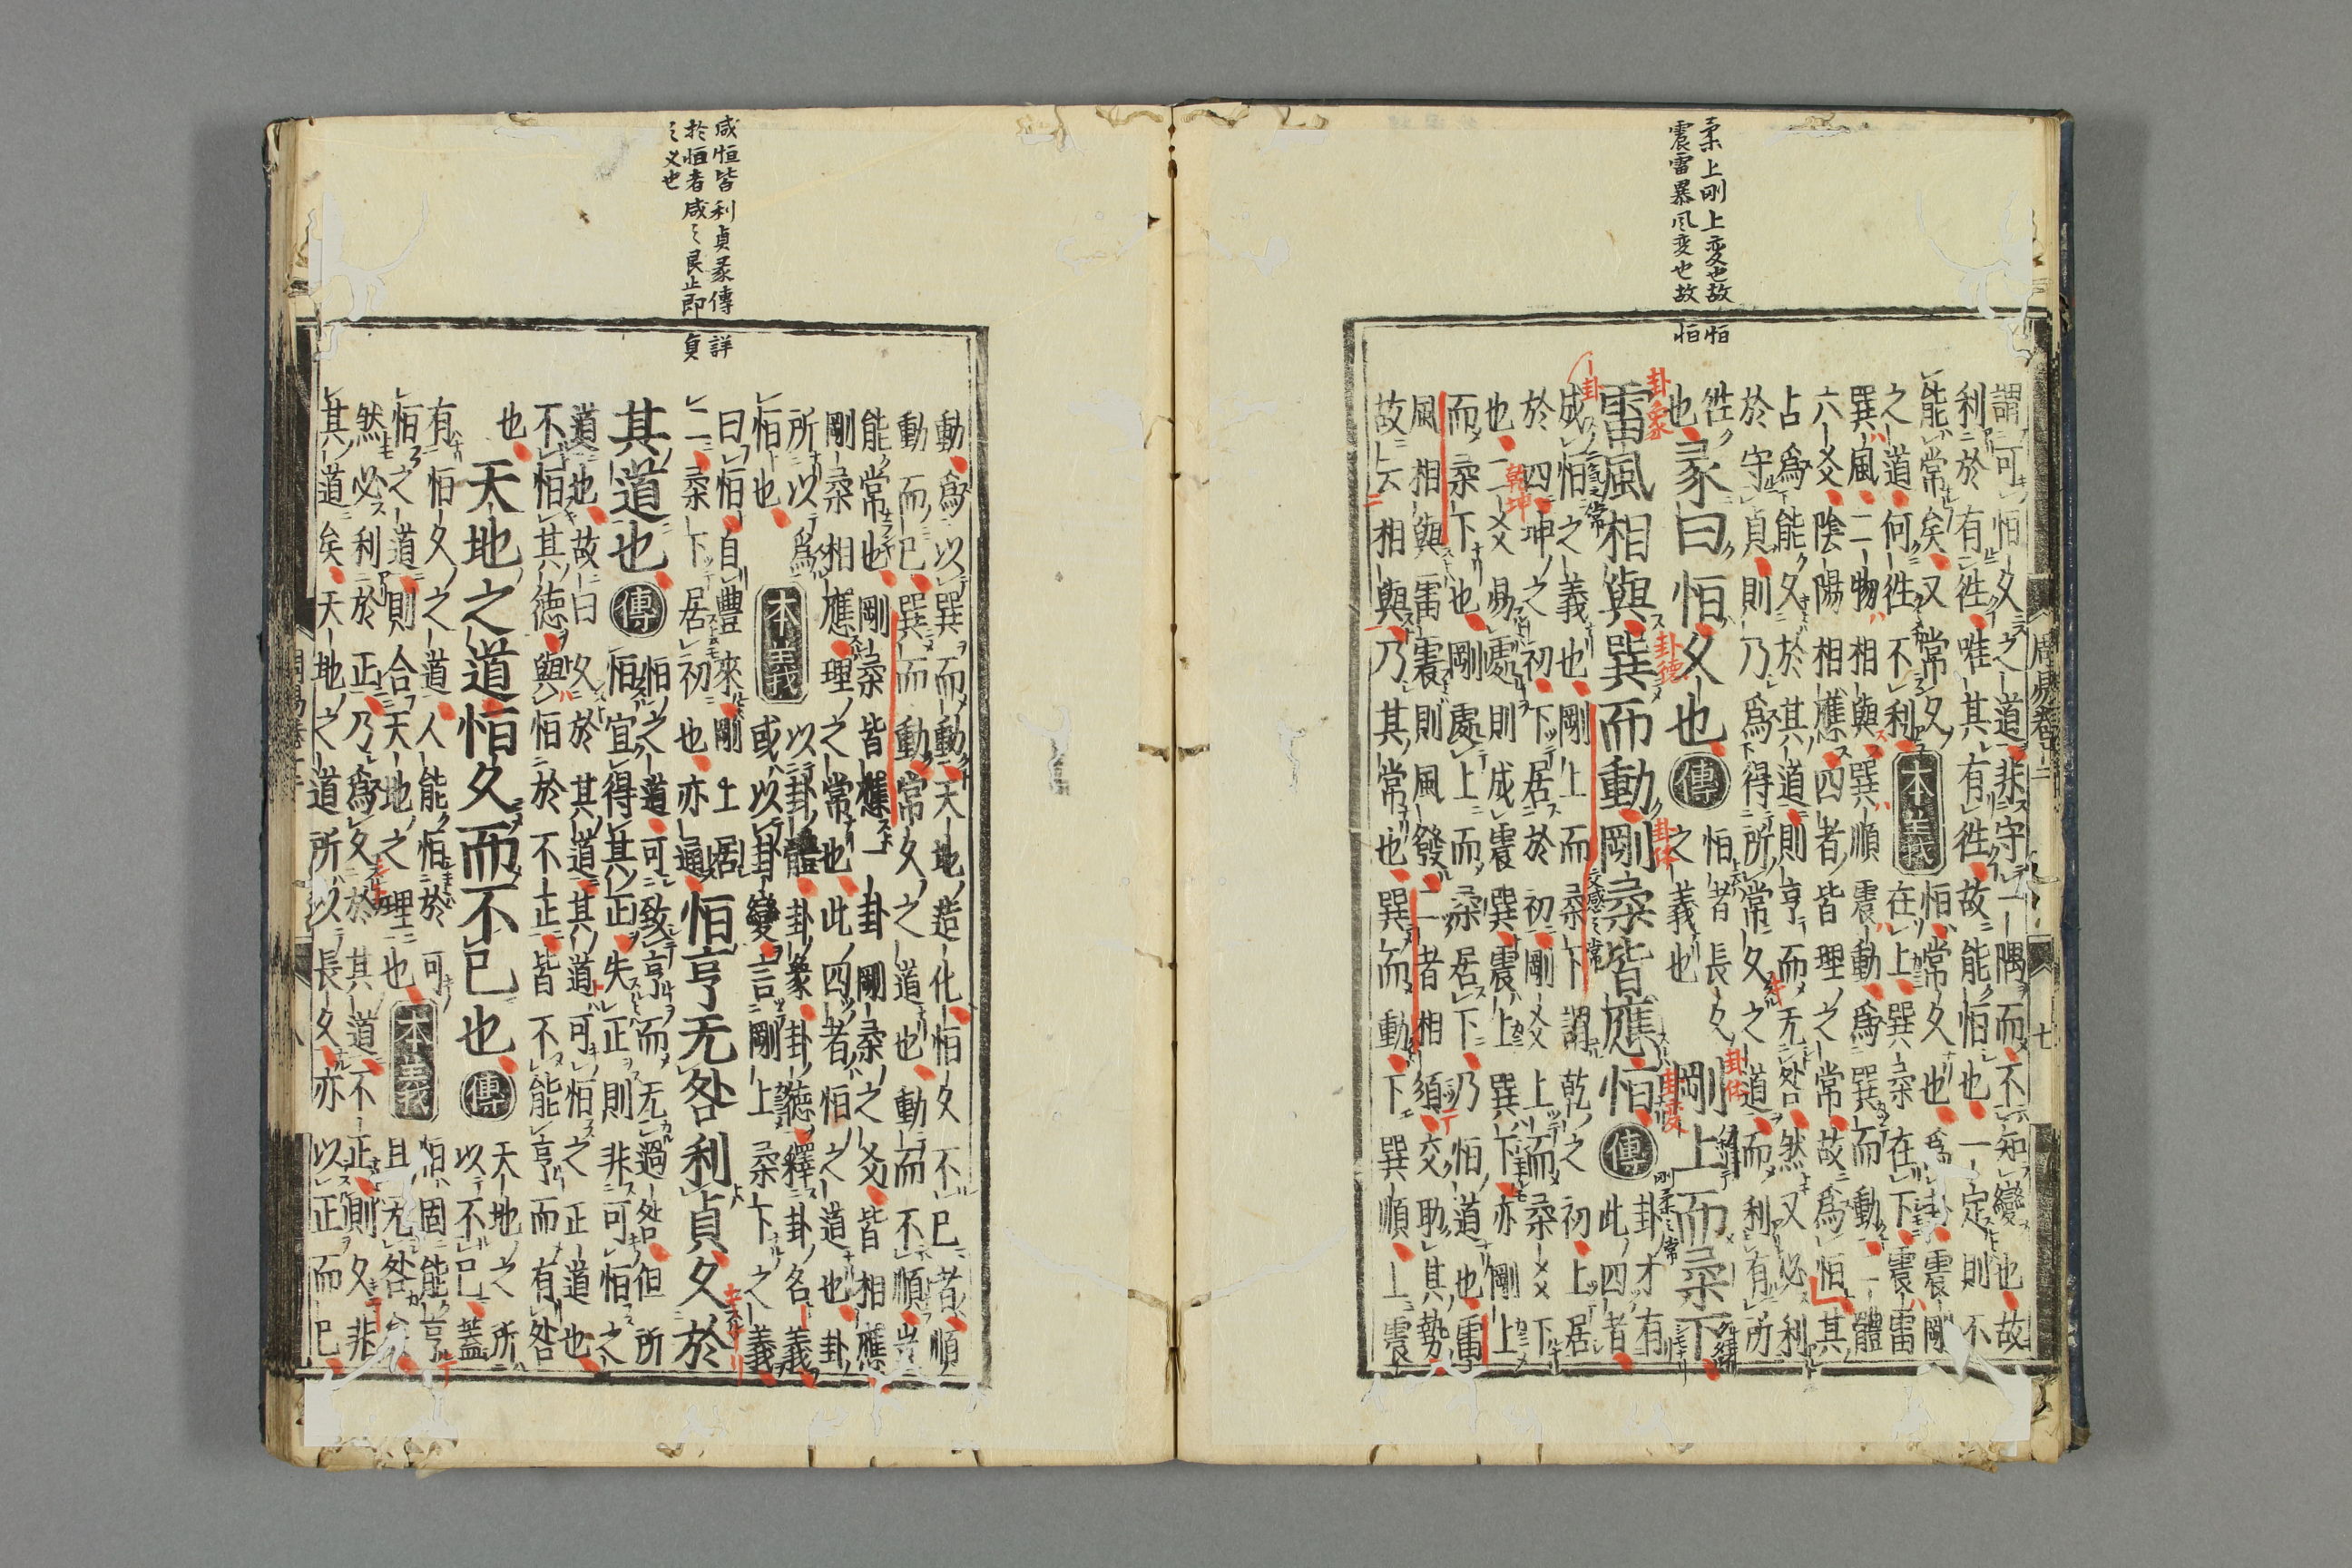 柔上剛上変也故恒
震雷暴風変也故恒
謂可恒久之道非守一隅而不知變也故
利於有往唯其有往故能恒也一定則不
能常矣又常久
之道何往不利
本義
恒常久也爲卦震剛
在上巽柔在下震雷
巽風二物相與巽順震動爲巽而動二體
六爻陰陽相應四者皆理之常故爲恒其
占爲能久於其道則亨而无咎然又必利
於守貞則乃爲得所常久之道而利有所
往也
彖曰恒久也
傳
恒者長久
之義也
剛上而柔下
雷風相與巽而動剛柔皆應恒
傳
卦才有
此四者
成恒之義也剛上而柔下謂乾之初上居
於四坤之初下居於初剛爻上而柔爻下
也二爻易處則成震巽震上巽下亦剛上
而柔下也剛處上而柔居下乃恒道也雷
風相與雷震則風發二者相須交助其勢
故云相與乃其常也巽而動下巽順上震
卦象
卦德
卦体
卦変
卦体
乾坤
剛柔之常
周易卷十二
七
咸恒皆利貞彖傳詳
於恒者咸之艮止即貞
之义也
動爲以巽而動天地造化恒久不已者順
動而已巽而動常久之道也動而不順豈
能常也剛柔皆應一卦剛柔之爻皆相應
剛柔相應理之常也此四者恒之道也卦
所以爲
恒也
本義
以卦體卦象卦德釋卦名義
或以卦變言剛上柔下之義
曰恒自豐來剛上居
二柔下居初也亦通
恒亨无咎利貞久於
其道也
傳
恒之道可致亨而无過咎但所
恒宜得其正失正則非可恒之
道也故曰久於其道其道可恒之正道也
不恒其德與恒於不正皆不能亨而有咎
也
天地之道恒久而不已也
傳
天地之所
以不已蓋
有恒久之道人能恒於可
恒之道則合天地之理也
本義
恒固能亨
且无咎矣
然必利於正乃爲久於其道不正則久非
其道矣天地之道所以長久亦以正而已
八